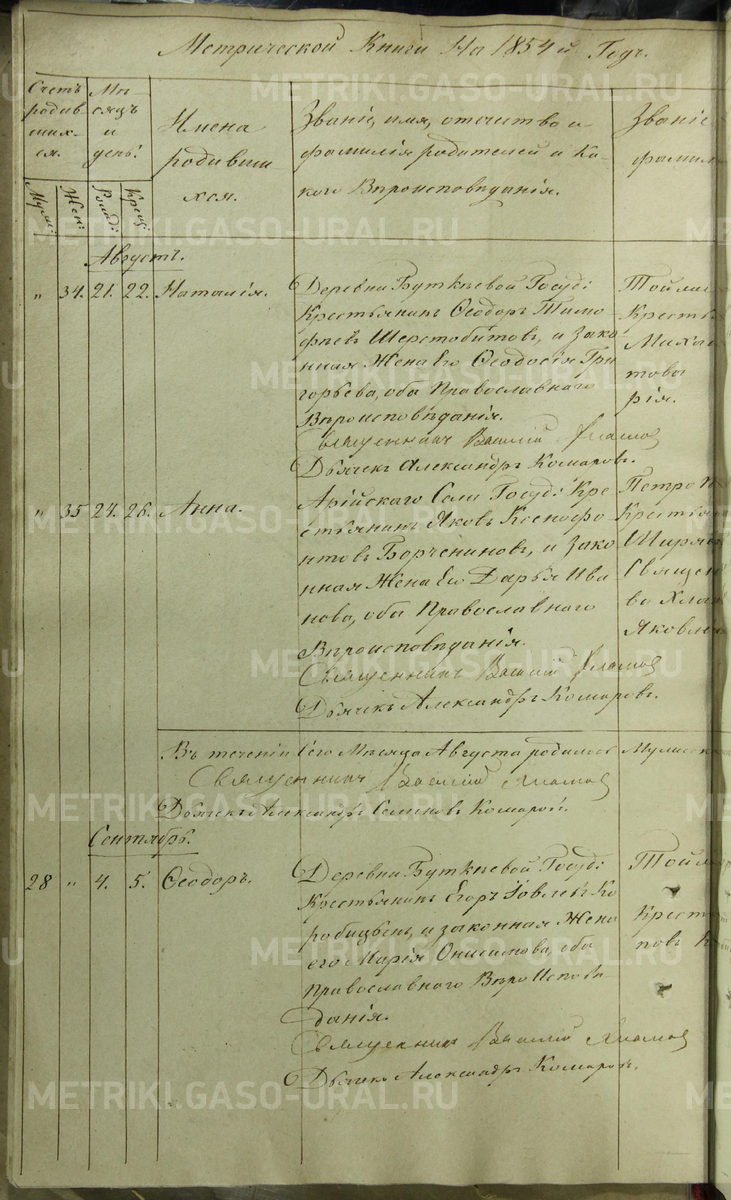 Метрической Книги На 1854й Годъ.
Счетъ родив шихся.
Мѣсяцъ и день:
Имена родивши хся.
Званіе, имя, отечество и
фамилія родителей и Ка-
кого Вѣроисповѣданія.
Званіе
фамил
Муж: Жен: Рожд: Крещ:
Августъ.
" 34. 21. 22. Наталія.
Деревни Буткѣевой Госуд:
Крестьянинъ Ѳеодоръ Тимо
фѣевъ Шерстобитовъ, и зако
нная Жена Его Ѳеодосія Гри
горьева, оба Православнаго
Вѣроисповѣданія.
Священникъ Василій Хламов
Дьячекъ Александръ Комаровъ.
Крестья
Миха
това
рія.
" 35 24. 26. Анна.
Арійскаго Села Госуд: Кре
стьянинъ Яковъ Ксенофо
нтовъ Борчениновъ, и Зако
нная Жена Его Дарья Ива
нова, оба Православнаго
Вѣроисповѣданія.
Священникъ Василій Хламов
Дьячекъ Александръ Комаровъ.
Петро
Крестья
Ширяе
Священ
ва Хлам
Яковл
Въ теченіи Сего Мѣсяца Августа родилось
Священникъ Василій Хламов
Дьячекъ Александръ Семеновъ Комаров.
Сентябрь.
28 " 4. 5. Ѳеодоръ.
Деревни Буткѣевой Госуд:
Крестьянинъ Егоръ Іовлевъ Ко
робицынъ, и законная Жена
его Марія Онисимова, оба
Православнаго Вѣро Испове
данія.
Священникъ Василій Хламов
Дьячекъ Александръ Комаровъ.
Крест
повъ
METRIKI.GASO-URAL.RU